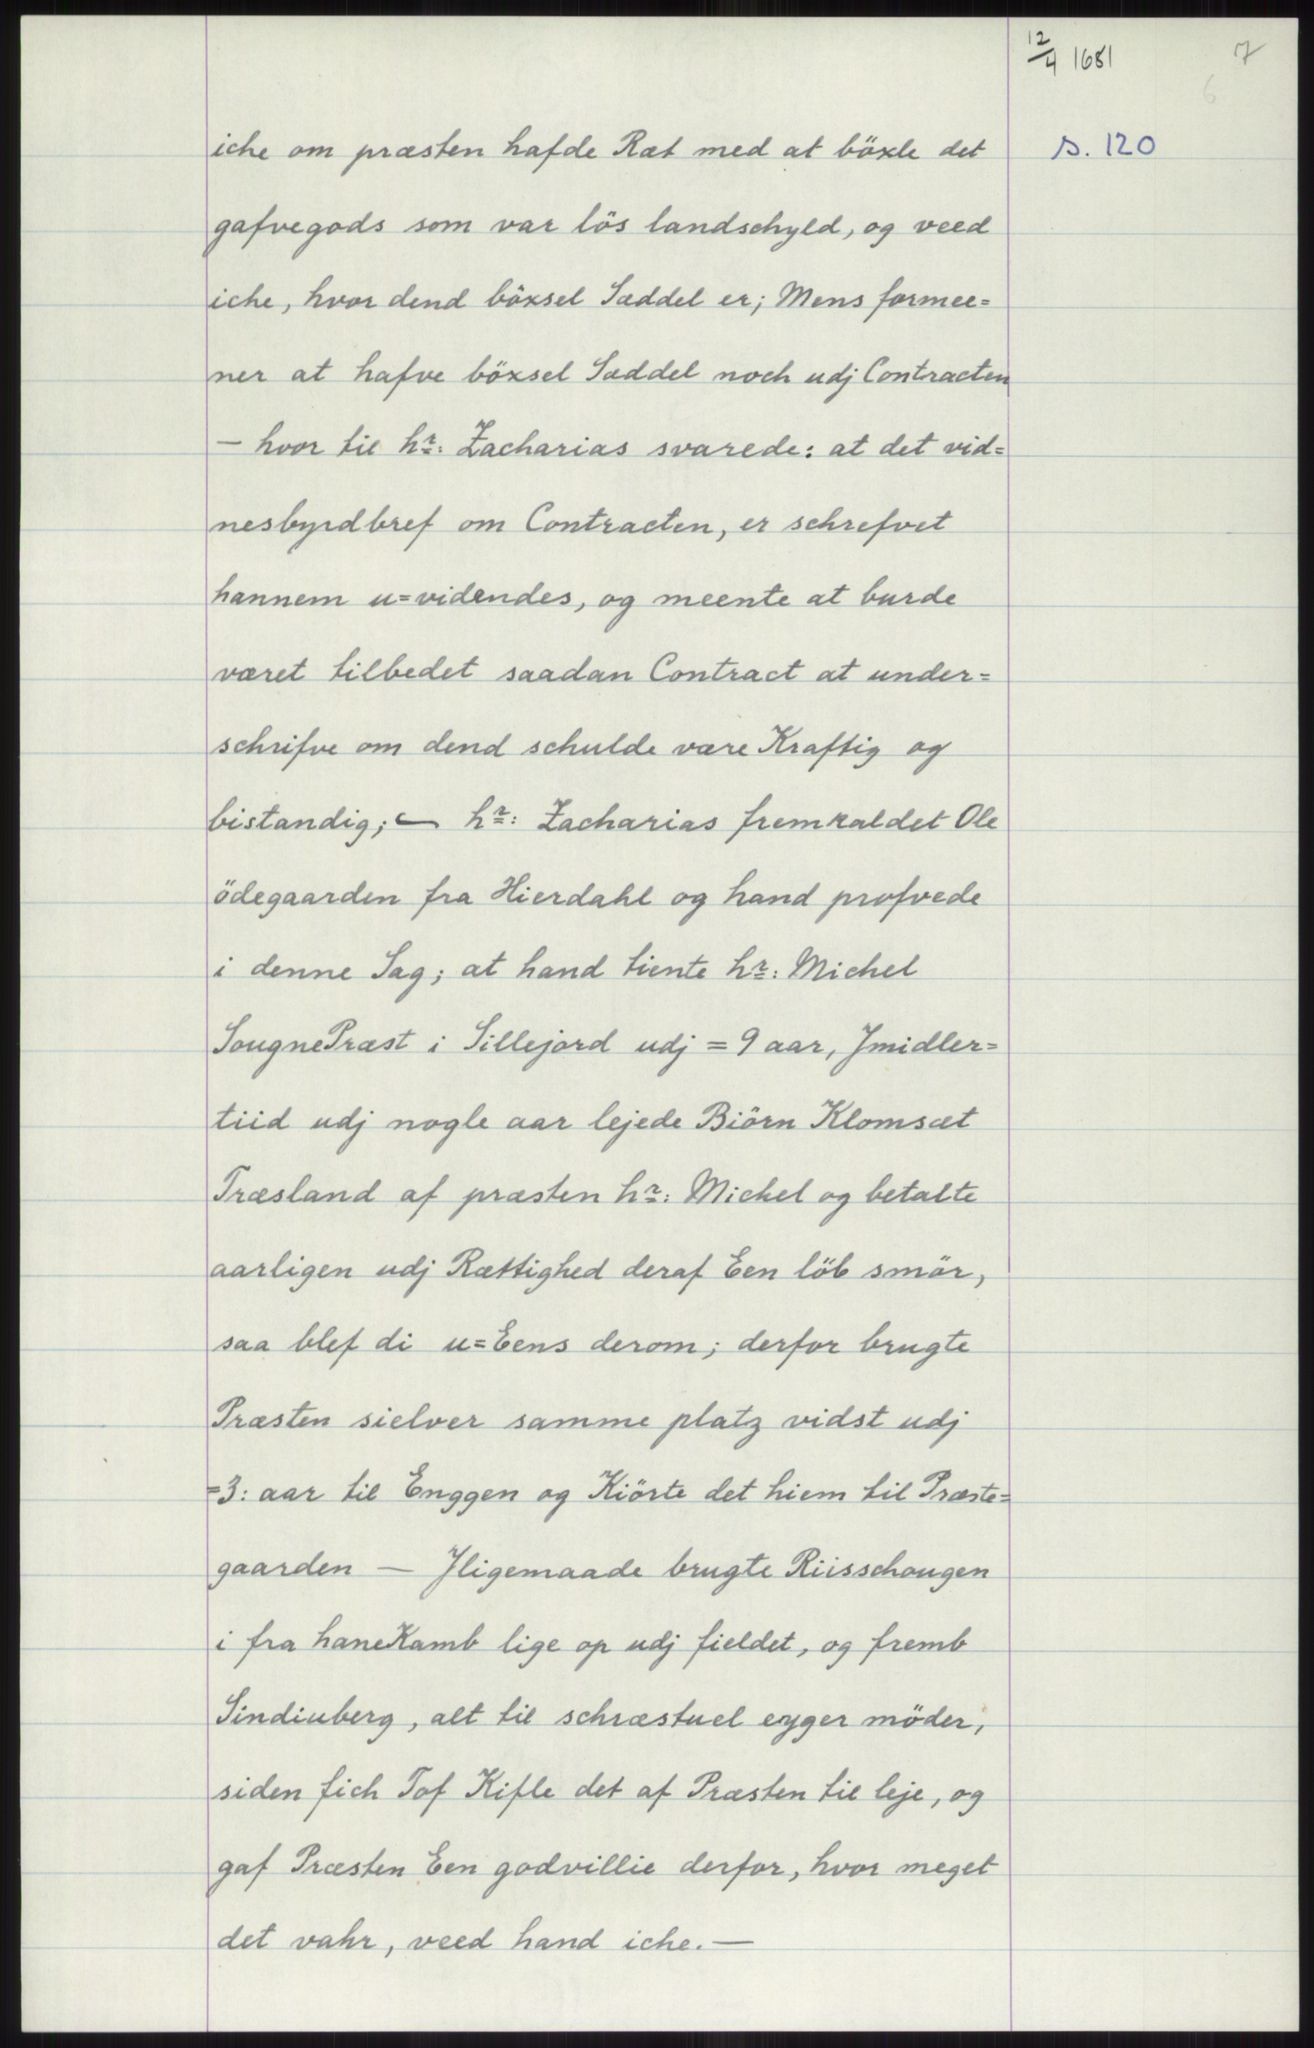 12/4 1681
7
6
s. 120
iche om præsten hafde Ræt med at böxle det
gafvegods som var lös landschyld, og veed
iche, hvor dend böxsel Sæddel er; Mens formee=
ner at hafve böxsel Sæddel noch udj Contracten
— hvor til hr: Zacharias svarede: at det vid=
nesbyrdbref om Contracten, er schrefvet
hannem u=videndes, og meente at burde
været tilbedet saadan Contract at under=
schrifve om dend schulde være Kraftig og
bistandig; — hr: Zacharias fremkaldet Ole
ödegaarden fra Hierdahl og hand profvede
i denne Sag; at hand tiente hr: Michel
SougnePræst i Sillejord udj = 9 aar, Jmidler=
tiid udj nogle aar lejede Biörn Klomsæt
Træsland af præsten hr: Michel og betalte
aarligen udj Rættighed deraf Een löb smör,
saa blef di u=Eens derom; derfor brugte
Præsten sielver samme platz vidst udj
=3: aar til Enggen og Kiörte det hiem til Præste=
gaarden — Jligemaade brugte Riisschougen
i fra haneKamb lige op udj fieldet, og fremb
Sindiuberg, alt til schræstuel eyger möder,
siden fich Tof Kifle det af Præsten til leje, og
gaf Præsten Een godvillie derfor, hvor meget
det vahr, veed hand iche. —